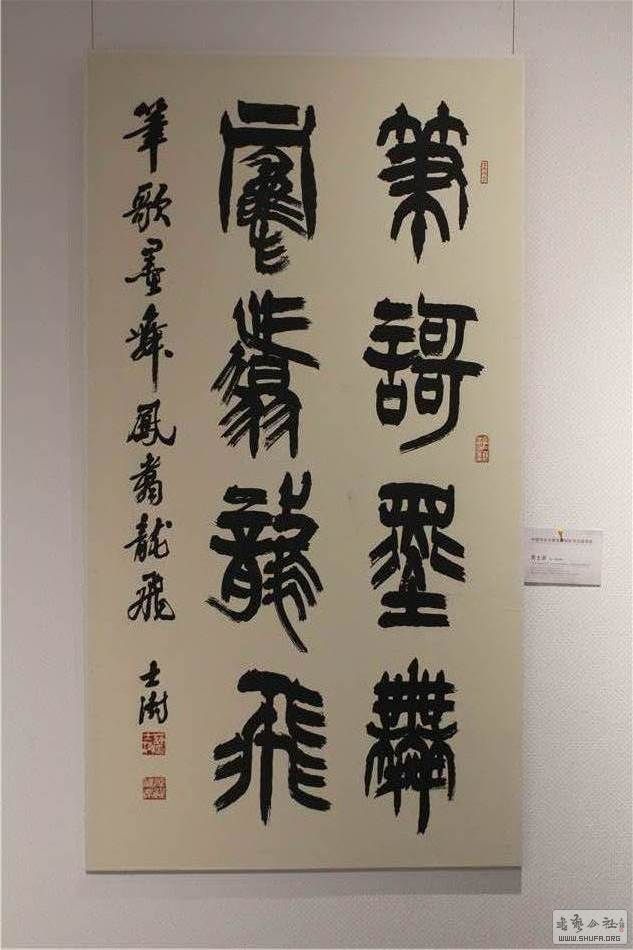 筆謌墨舞
鳳翥龍飛
筆歌墨舞鳳翥龍飛 士澍
書藝公社
WWW.SHUFA.ORG